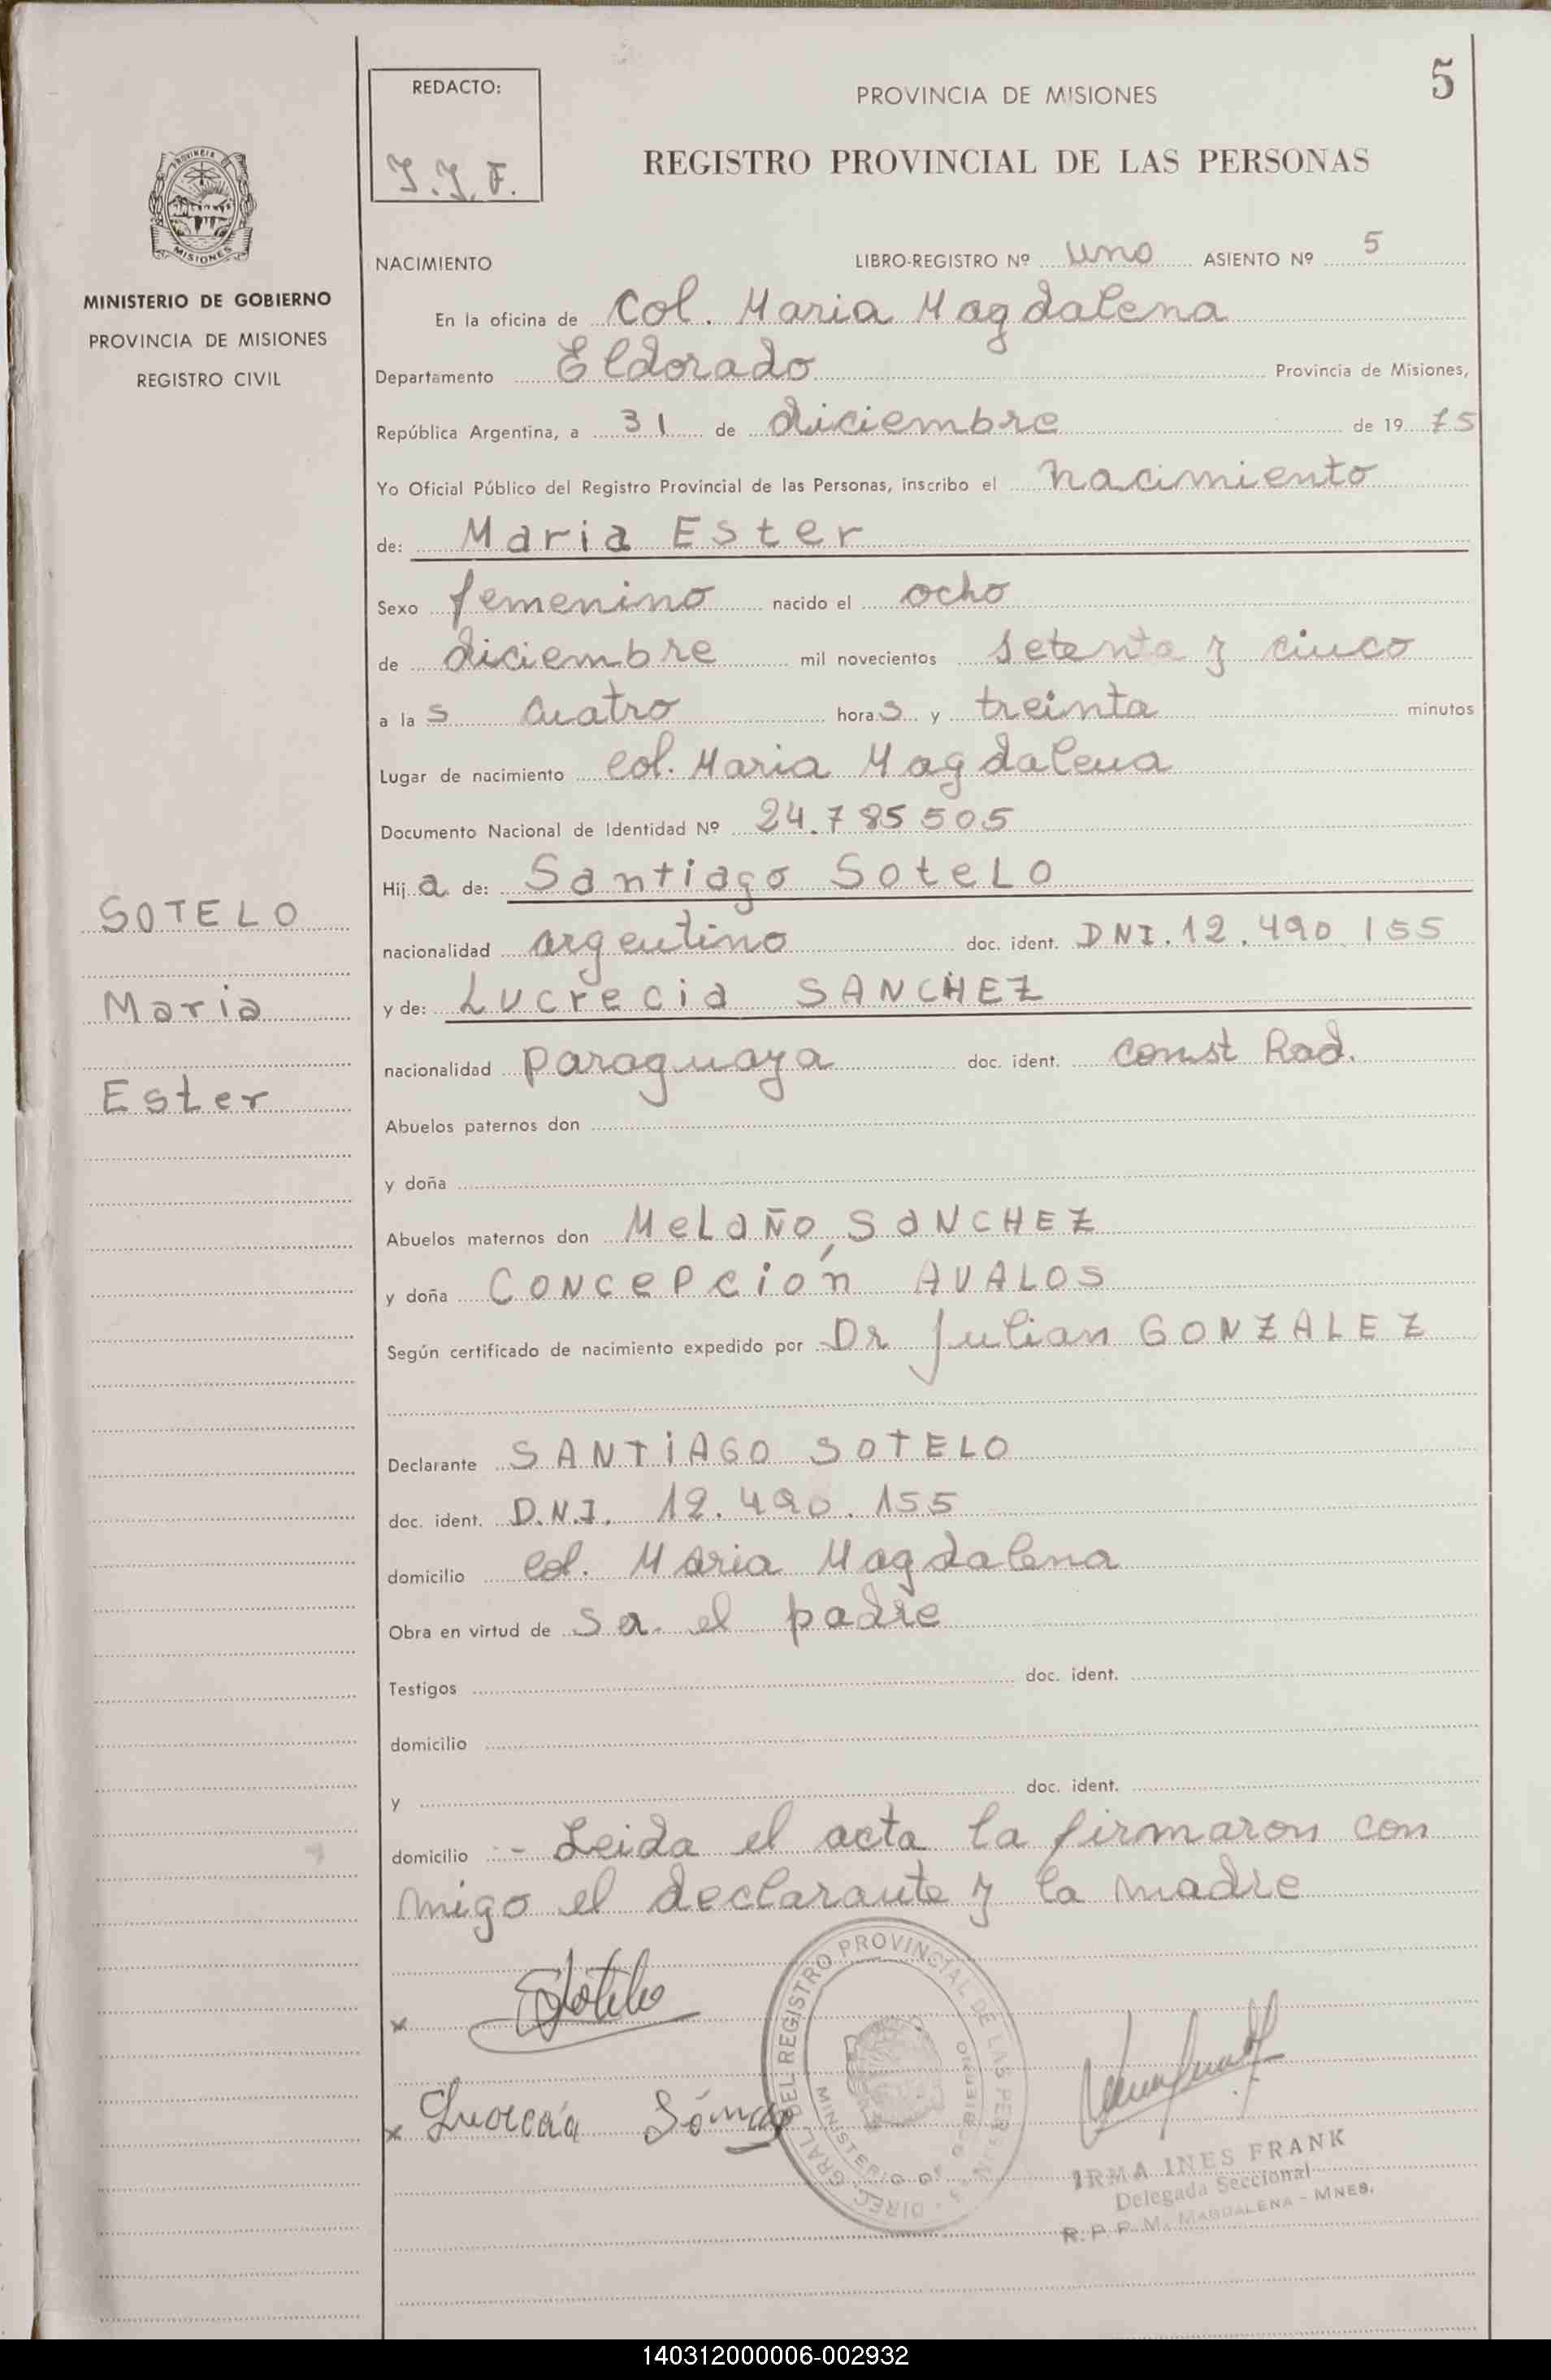 5
REDACTO:
I.I.F.
PROVINCIA DE MISIONES
REGISTRO PROVINCIAL DE LAS PERSONAS
PROVINCIA DE
MISIONES
MINISTERIO DE GOBIERNO
PROVINCIA DE MISIONES
REGISTRO CIVIL
NACIMIENTO LIBRO-REGISTRO Nº uno ASIENTO Nº 5
En la oficina de Col. Maria Magdalena
Departamento Eldorado Provincia de Misiones,
República Argentina, a 31 de diciembre de 19 75
Yo Oficial Público del Registro Provincial de las Personas, inscribo el nacimiento
de: Maria Ester
Sexo femenino nacido el ocho
de diciembre mil novecientos setenta y cinco
a las cuatro horas y treinta minutos
Lugar de nacimiento Col. Maria Magdalena
Documento Nacional de Identidad Nº 24.785505
Hija de: Santiago SoteLo
nacionalidad argentino doc. ident. DNI. 12.490.155
y de: Lucrecia SANCHEZ
nacionalidad paraguaya doc. ident. const Rad.
Abuelos paternos don
y doña
Abuelos maternos don MeLaÑo SaNCHEZ
y doña CONCePción AVALOS
Según certificado de nacimiento expedido por Dr Julian GONZALEZ
Declarante SANTiAGO SOTELO
doc. ident. D.N.I. 12.490.155
domicilio Col. Maria Magdalena
Obra en virtud de ser el padre
Testigos doc. ident.
domicilio
y doc. ident.
domicilio :- Leida el acta la firmaron con
migo el declarante y la madre
SOTELO
Maria
Ester
x Sotelo
x
DIREC. GRAL. DEL REGISTRO PROVINCIAL DE LAS PERSONAS
MINISTERIO DE GOBIERNO
IRMA INES FRANK
Delegada Seccional
R. P. P. M. MAGDALENA - MNES.
140312000006-002932